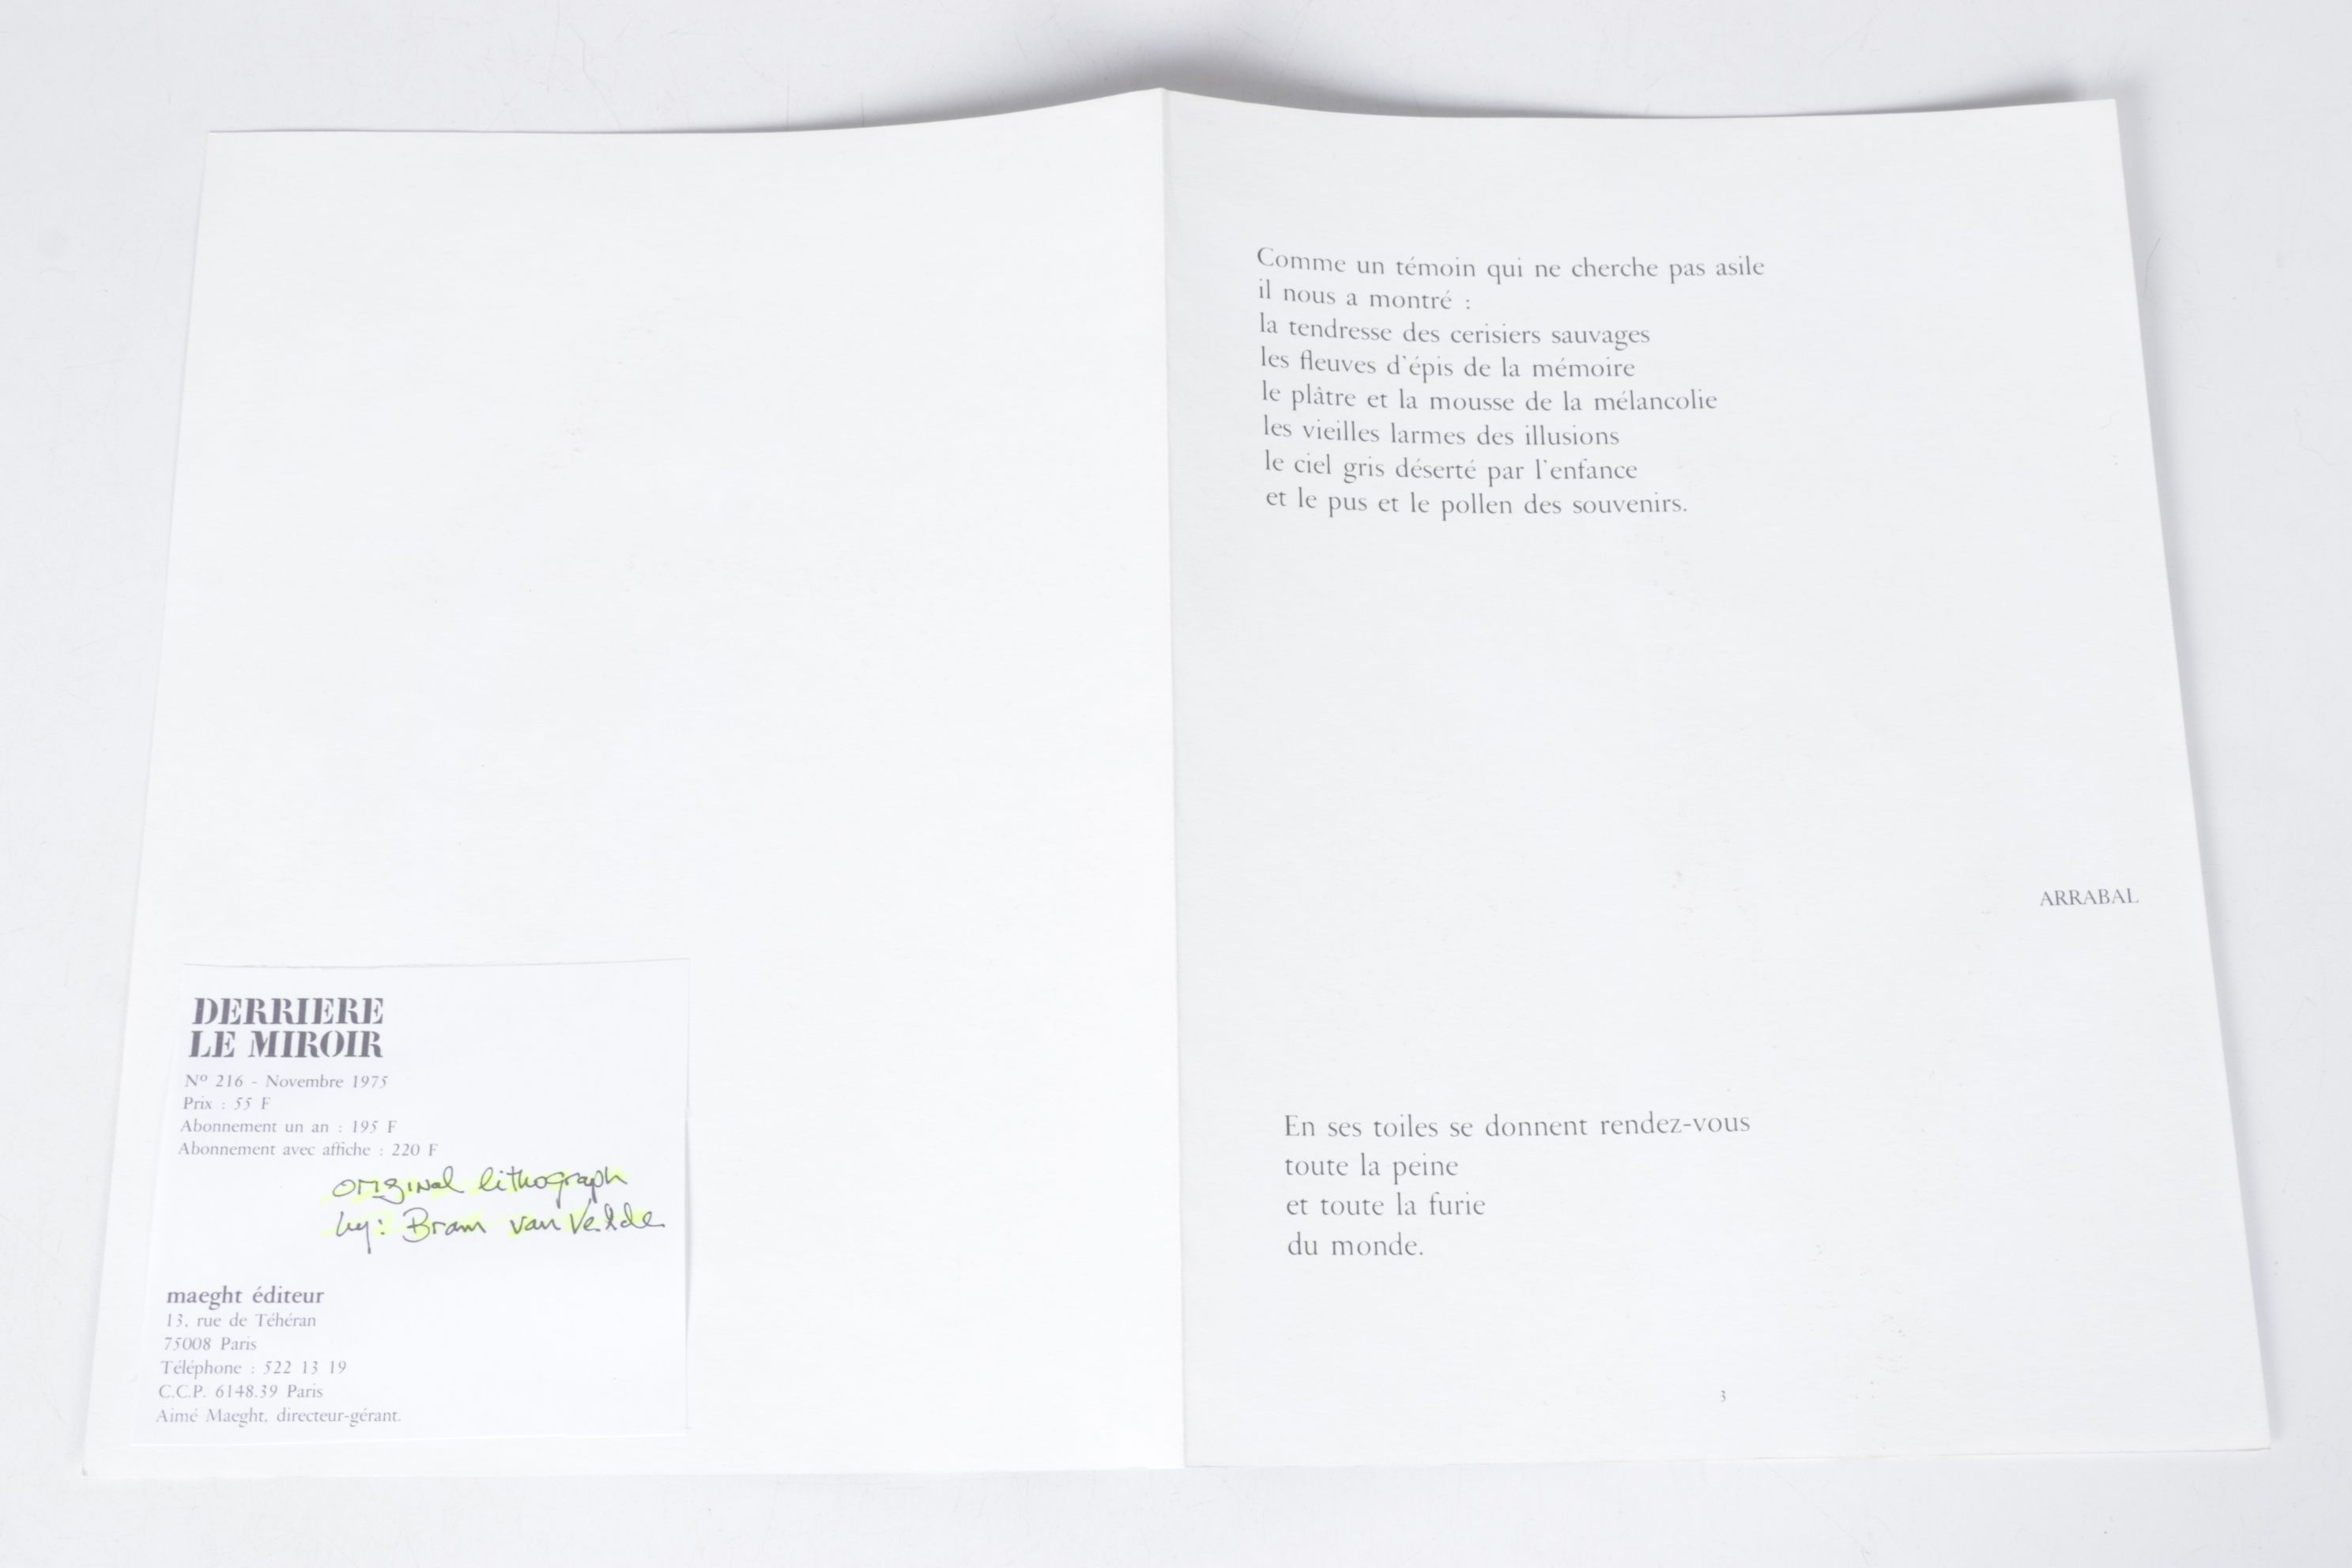 DERRIERE
LE MIROIR
Nº 216 - Novembre 1975
Prix : 55 F
Abonnement un an : 195 F
Abonnement avec affiche : 220 F
original lithograph
by: Bram van Velde
maeght éditeur
13, rue de Téhéran
75008 Paris
Téléphone : 522 13 19
C.C.P. 6148.39 Paris
Aimé Maeght, directeur-gérant.
Comme un témoin qui ne cherche pas asile
il nous a montré :
la tendresse des cerisiers sauvages
les fleuves d'épis de la mémoire
le plâtre et la mousse de la mélancolie
les vieilles larmes des illusions
le ciel gris déserté par l'enfance
et le pus et le pollen des souvenirs.
ARRABAL
En ses toiles se donnent rendez-vous
toute la peine
et toute la furie
du monde.
3